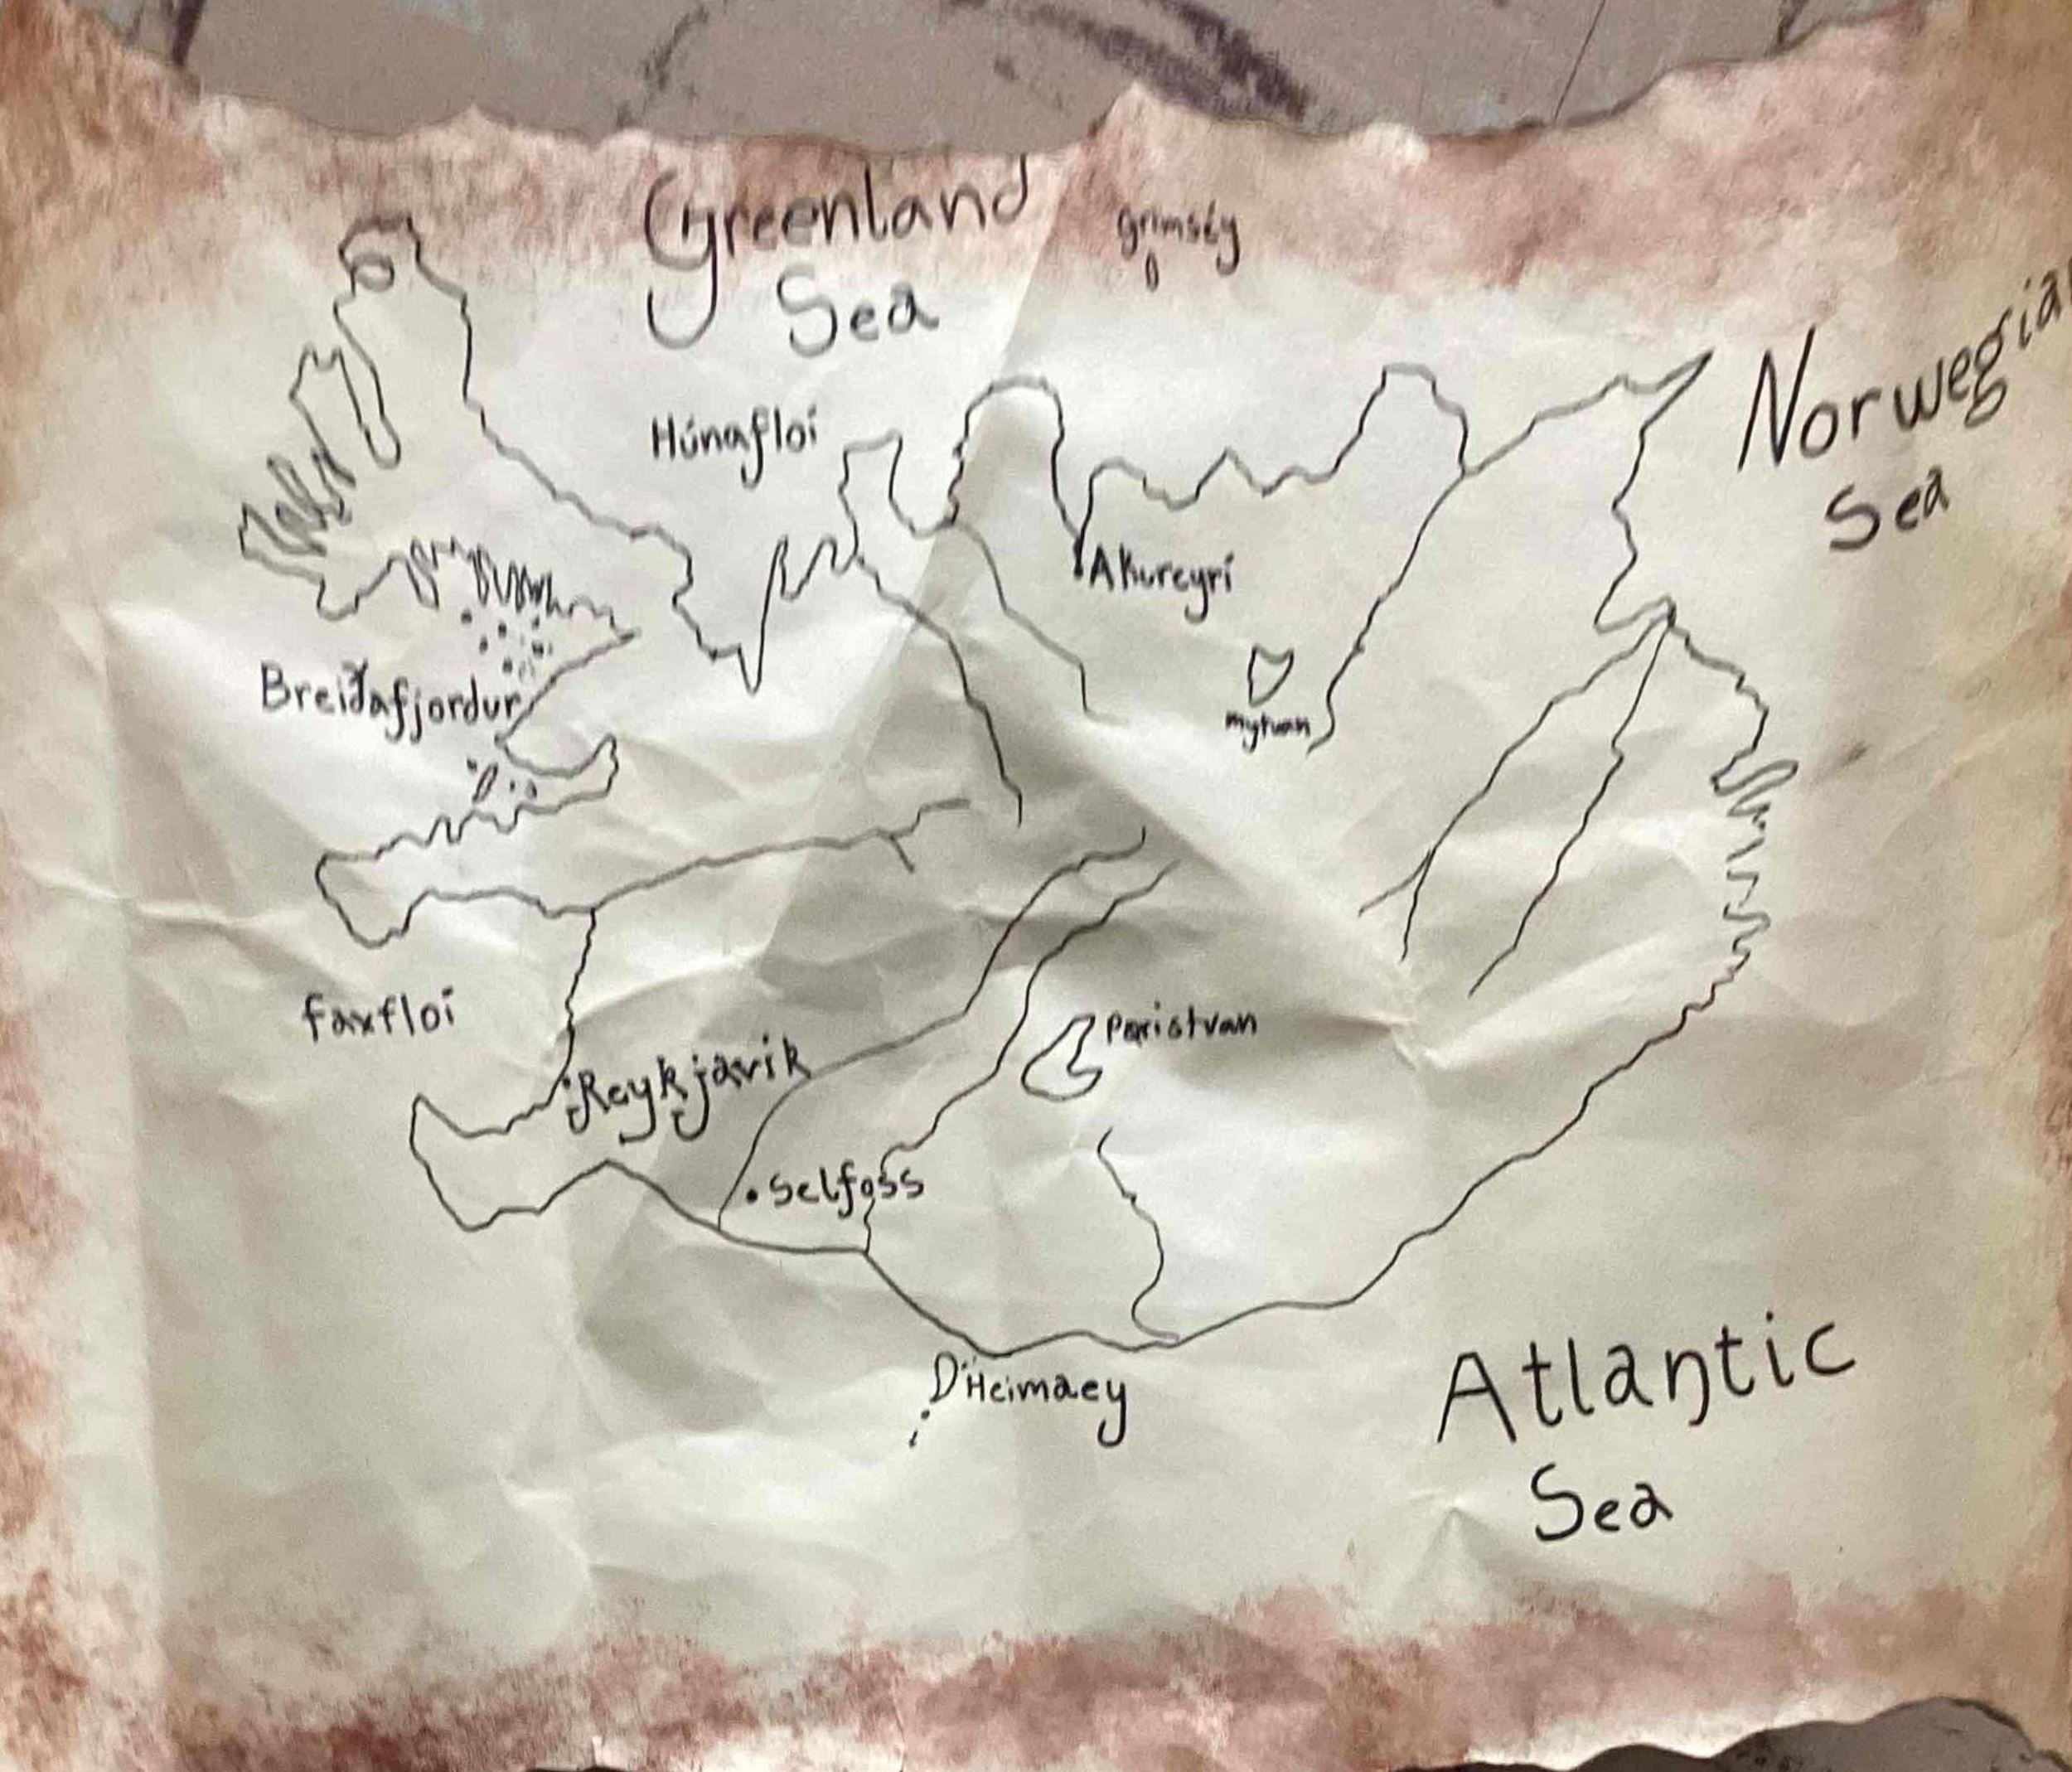 Greenland
Sea
grimséy
Norwegian
Sea
Húnafloí
Akureyri
Breiðafjordur
mytvan
faxfloí
Reykjavik
Paristvan
Selfoss
Heimaey
Atlantic
Sea